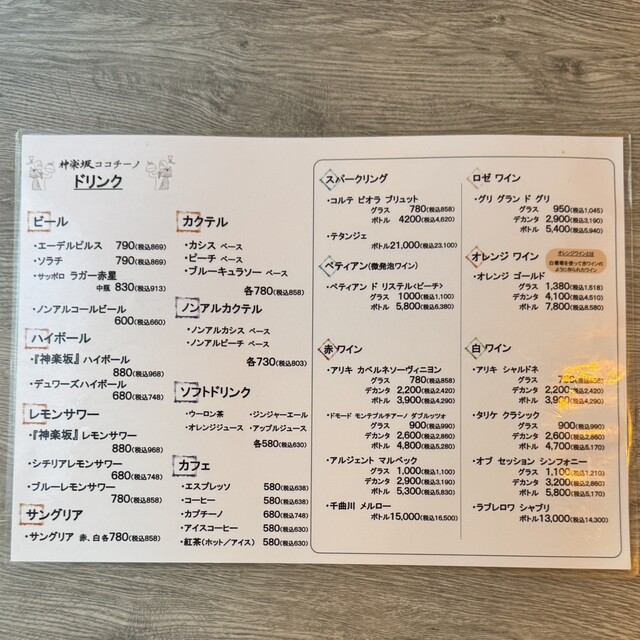 神楽坂ココチーノ
ドリンク
ビール
・エーデルピルス 790(税込869)
・ソラチ 790(税込869)
・サッポロ ラガー赤星
中瓶 830(税込913)
・ノンアルコールビール
600(税込660)
ハイボール
・『神楽坂』ハイボール
880(税込968)
・デュワーズハイボール
680(税込748)
レモンサワー
・『神楽坂』レモンサワー
880(税込968)
・シチリアレモンサワー
680(税込748)
・ブルーレモンサワー
780(税込858)
サングリア
・サングリア 赤、白各780(税込858)
カクテル
・カシス ベース
・ピーチ ベース
・ブルーキュラソー ベース
各780(税込858)
ノンアルカクテル
・ノンアルカシス ベース
・ノンアルピーチ ベース
各730(税込803)
ソフトドリンク
・ウーロン茶 ・ジンジャーエール
・オレンジジュース ・アップルジュース
各580(税込630)
カフェ
・エスプレッソ 580(税込638)
・コーヒー 580(税込638)
・カプチーノ 680(税込748)
・アイスコーヒー 580(税込630)
・紅茶(ホット/アイス) 580(税込630)
スパークリング
・コルテ ビオラ ブリュット
グラス 780(税込858)
ボトル 4200(税込4,620)
・テタンジェ
ボトル21,000(税込23,100)
ペティアン(微発泡ワイン)
・ペティアン ド リステル<ピーチ>
グラス 1000(税込1,100)
ボトル 5,800(税込6,380)
赤ワイン
・アリキ カベルネソーヴィニヨン
グラス 780(税込858)
デカンタ 2,200(税込2,420)
ボトル 3,900(税込4,290)
・ドモード モンテプルチアーノ ダブルッツオ
グラス 900(税込990)
デカンタ 2,600(税込2,860)
ボトル 4,800(税込5,280)
・アルジェント マルベック
グラス 1,000(税込1,100)
デカンタ 2,900(税込3,190)
ボトル 5,300(税込5,830)
・千曲川 メルロー
ボトル15,000(税込16,500)
ロゼ ワイン
・グリ グラン ド グリ
グラス 950(税込1,045)
デカンタ 2,900(税込3,190)
ボトル 5,400(税込5,940)
オレンジ ワイン
オレンジワインとは
白葡萄を使って赤ワインの
ように作られたワイン
・オレンジ ゴールド
グラス 1,380(税込1,518)
デカンタ 4,100(税込4,510)
ボトル 7,800(税込8,580)
白 ワイン
・アリキ シャルドネ
グラス
デカンタ 2,200(税込2,420)
ボトル 3,900(税込4,290)
・タリケ クラシック
グラス 900(税込990)
デカンタ 2,600(税込2,860)
ボトル 4,700(税込5,170)
・オブ セッション シンフォニー
グラス 1,100(税込1,210)
デカンタ 3,200(税込2,860)
ボトル 5,800(税込5,170)
・ラブレロワ シャブリ
ボトル13,000(税込14,300)